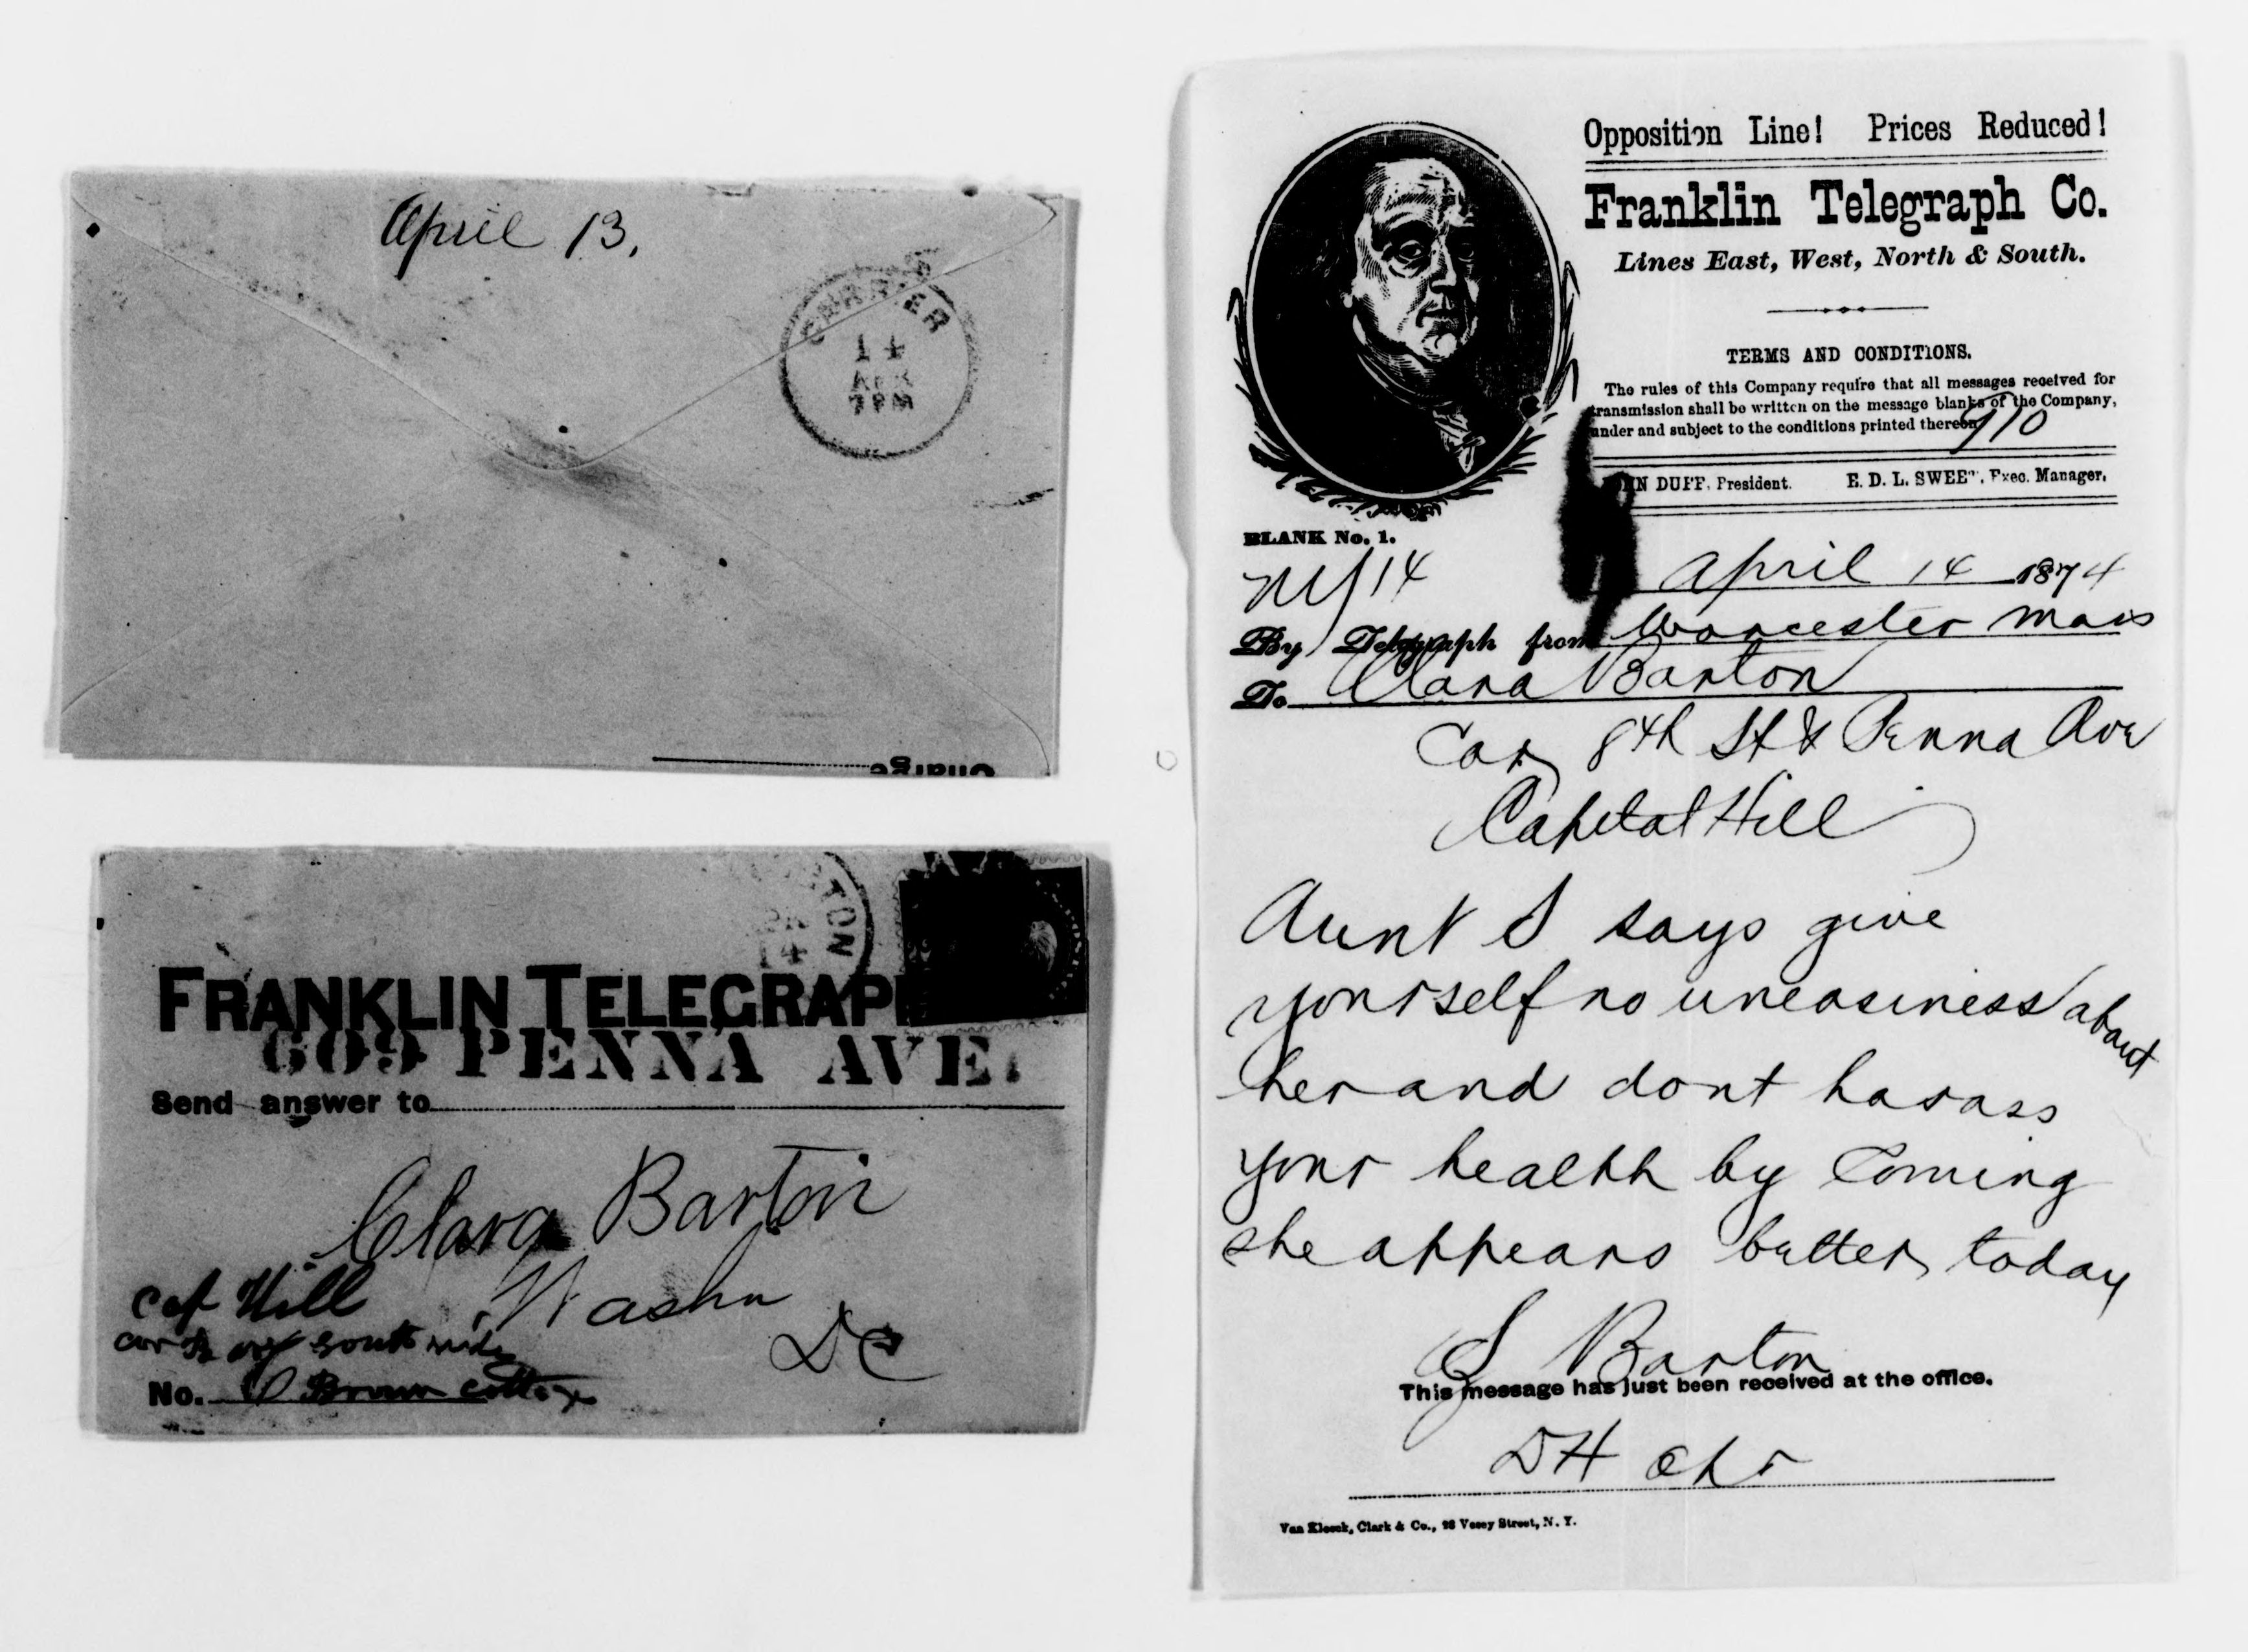 April 13.
CARRIER
14
APR
7 PM
Charge
TON
14
FRANKLIN TELEGRAPH
609 PENNA AVE.
Send answer to
Clara Barton
Washn
DC
Cap Hill
south side
No. Brown cottage
Opposition Line! Prices Reduced!
Franklin Telegraph Co.
Lines East, West, North & South.
TERMS AND CONDITIONS.
The rules of this Company require that all messages received for
transmission shall be written on the message blanks of the Company,
under and subject to the conditions printed thereon
910
DUFF, President. E. D. L. SWEET, Exec. Manager.
BLANK No. 1.
NY 14
April 14 1874
By Telegraph from Worcester Mass
To Clara Barton
Cor 8th St & Penna Ave
Capital Hill
Aunt S says give
yourself no uneasiness about
her and dont harass
your health by Coming
she appears better today
S Barton
This message has just been received at the office.
DH
Van Kleeck, Clark & Co., Vesey Street, N. Y.